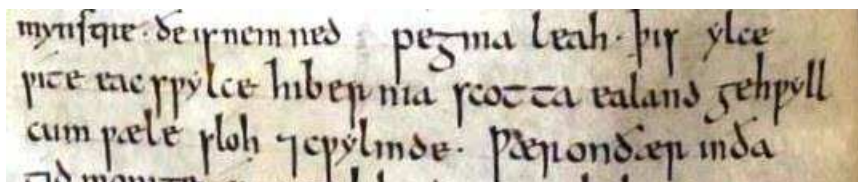 mynstre · ðe is nemned pegma leah · þis ylce
ƿite eac sƿylce hibernia scotta ealand gehƿyll
cum ƿæle sloh ⁊ cƿylmde · Ƿæron ðær in ða